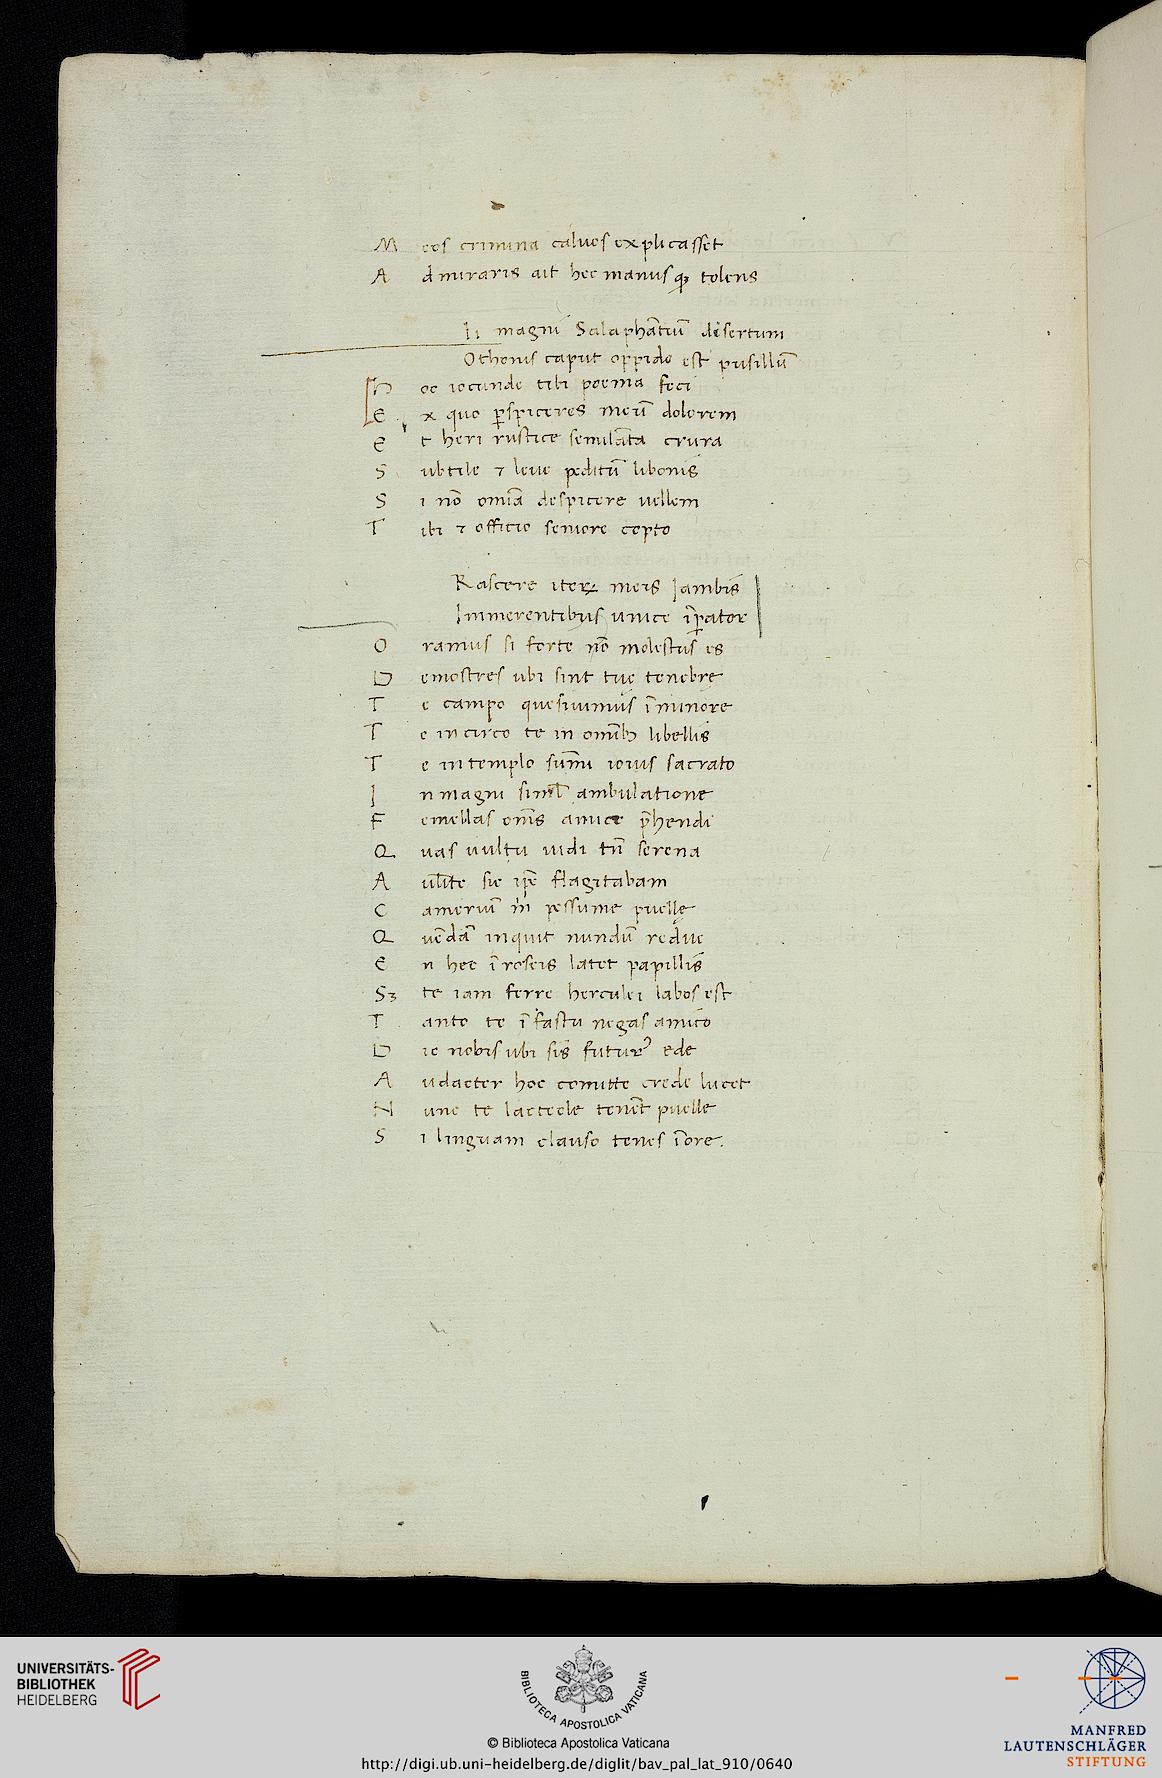 M eos crimina caluos explicasset
A dmiraris ait hec manusqȝ tolens
Ii magni Salaphãtiũ disertum
Othonis caput oppido est pusillũ
H oc iocunde tibi poema feci
E x quo ꝑspiceres meũ dolorem
E t heri rustice semilãta crura
S ubtile ⁊ leue peditũ libonis
S i nõ omĩa despicere uellem
T ibi ⁊ officio seniore cepto
Rascere iteꝝ meis Jambis
Immerentibus unice ĩꝑator
O ramus si forte nõ molestus es
D emostres ubi sint tuę tenebrę
T e campo quesiuimus ĩ minore
T e in circo te in omĩbȝ libellis
T e in templo sum̃i iouis sacrato
I n magni simł ambulatione
F emellas om̃s amice p̃hendi
Q uas uultu uidi tñ serena
A ul̃te sic ip̃e flagitabam
C amerium m̃ pessume puellę
Q uẽdã inquit nundũ reduc
E n hec ĩ roseis latet papillis
Sȝ te iam ferre herculei labos est
T anto te ĩ fastu negas amico
D ic nobis ubi sis futurꝰ ede
A udacter hoc comitte crede lucet
N unc te lacteole tenẽt puelle
S i linguam clauso tenes ĩ ore.
UNIVERSITÄTS-
BIBLIOTHEK
HEIDELBERG
BIBLIOTECA APOSTOLICA VATICANA
© Biblioteca Apostolica Vaticana
http://digi.ub.uni-heidelberg.de/diglit/bav_pal_lat_910/0640
MANFRED
LAUTENSCHLÄGER
STIFTUNG